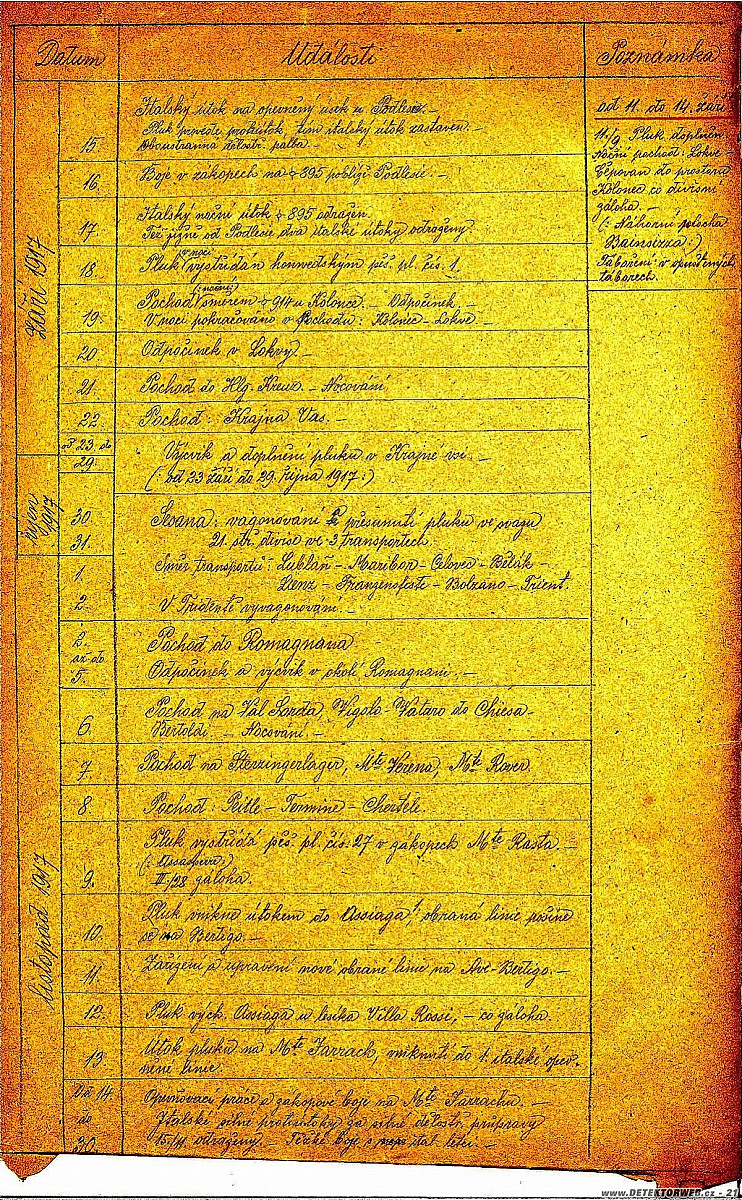 Datum
Události
Poznámka
Září 1917
15.
Italský útok na opevněný úsek u Podlesce. –
Pluk provede protiútok, čím italský útok zastaven. –
Oboustranná dělostř. palba. –
16.
Boje v zákopech na ⌖ 895 poblíže Podlesie. –
17.
Italský noční útok ⌖ 895 odražen.
Též jižně od Podlesie dva italské útoky odraženy.
18.
Pluk v noci vystřídán honvedským pěš. pl. čís. 1.
19.
Pochod (: noční :) směrem ⌖ 914 u Kolonce. – Odpočinek. –
V noci pokračováno v pochodu: Kolonec – Lokve. –
20.
Odpočinek v Lokvy. –
21.
Pochod do Hlg. Kreuz. – Nocování.
22.
Pochod: Krajna Vas. –
od 23. do
29.
Výcvik a doplnění pluku v Krajné vsi. –
(: od 23 září do 29. října 1917 :)
Říjen 1917
30.
31.
Sesana: vagonování & přesunutí pluku ve svazu
21. stř. divise ve 3 transportech.
Listopad 1917
1.
Směr transportu: Lublaň – Maribor – Celovec – Bělák –
Lienz – Franzensfeste – Bolzano – Trient.
2.
V Tridentě vyvagonování. –
2.
až do
5.
Pochod do Romagnana
Odpočinek a výcvik v okolí Romagnani. –
6.
Pochod na Val Sorda, Vigolo-Vataro do Chiesa-
Bertoldi – Nocování. –
7.
Pochod na Sterzingerlager, Mte Verena, Mte Rover.
8.
Pochod: Peitle – Termine – Chertele.
9.
Pluk vystřídá pěš. pl. čís. 27 v zákopech Mte Rasta. –
III/28 záloha.
10.
Pluk vnikne útokem do Assiaga,
se na Bertigo. –
11.
Zařízení a upravení nové obrané linie na Ave-Bertigo. –
12.
Pluk vých. Assiaga u lesíka Villa Rossi, – co záloha.
13.
Útok pluku na Mte Tarrach, vniknutí do 1. italské opev-
něné linie.
Od 14.
do
30.
Opevňovací práce a zákopové boje na Mte Tarrachu. –
Italské silné protiútoky za silné dělostř. přípravy
15/11. odraženy. – Těžké boje s ital. letci. –
od 11. do 14. Září
11./9. Pluk doplněn.
Noční pochod: Lokve
Čepovan do prostoru
Kolonec co divisní
záloha. –
(: Náhorní plocha
Bainsizza. :)
Táboření v opuštěných
táborech.
www.DETEKTORWEB.cz - 21